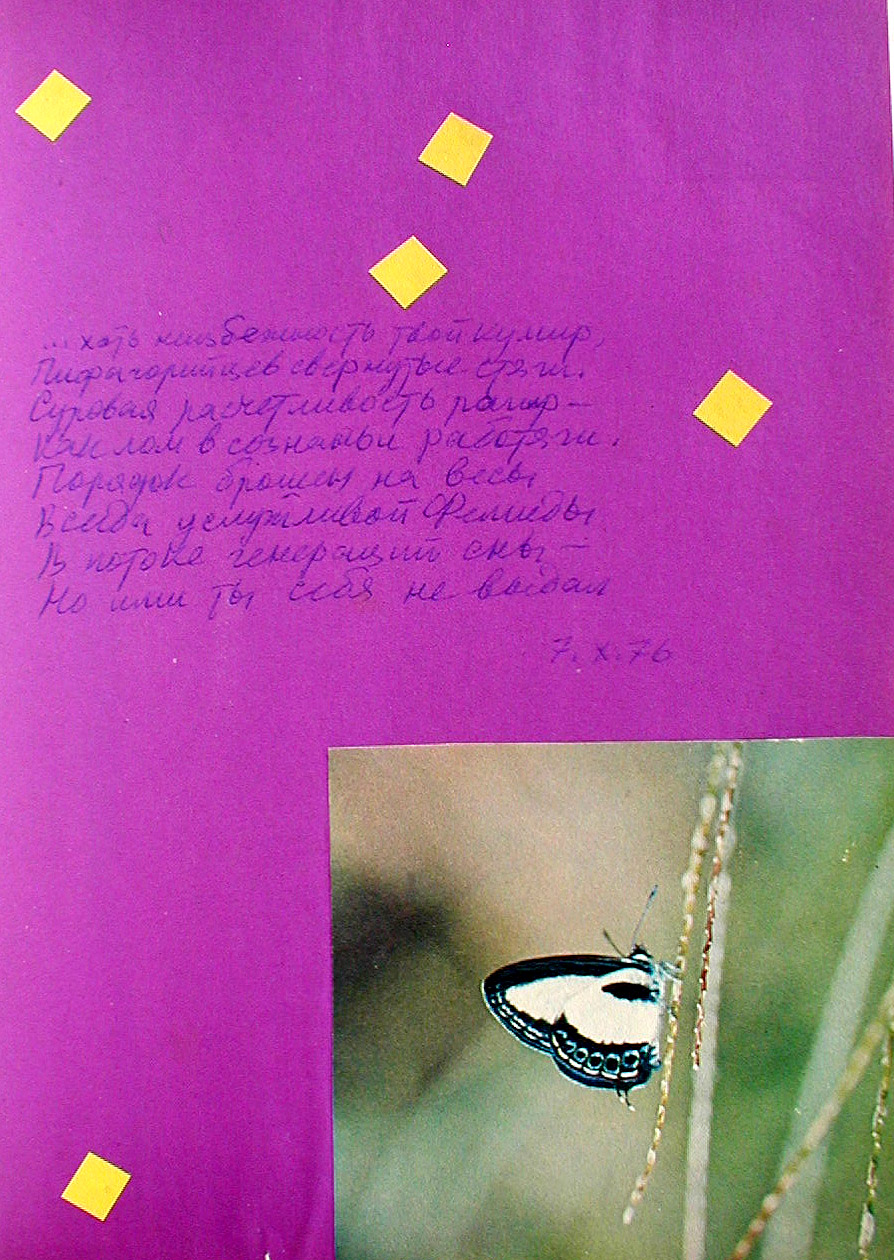 ... хоть неизбежность твой кумир,
Пифагорийцев свернутые стяги.
Суровая расчетливость рапир –
Как лом в сознаньи работяги.
Порядок брошен на весы
Всегда услужливой Фемиды
В потоке генераций сны –
Но ими ты себя не выдал
7. X. 76